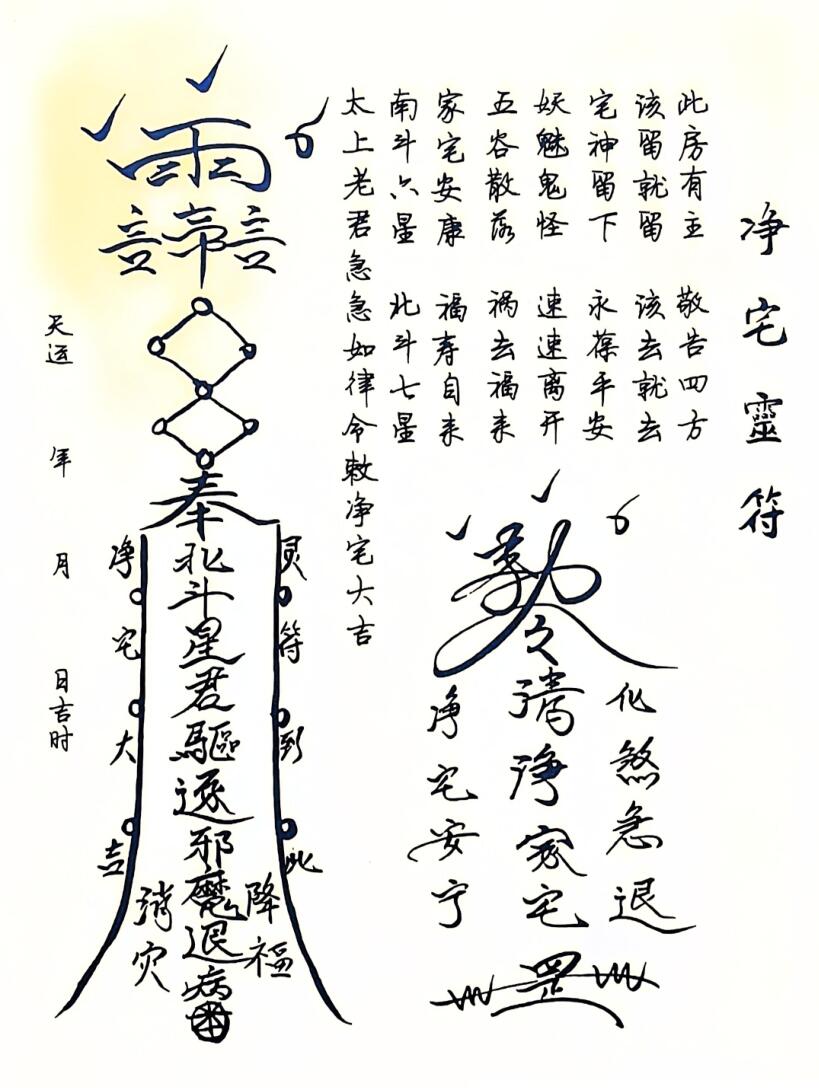 净宅靈符
此房有主 敬告四方
该留就留 该去就去
宅神留下 永葆平安
妖魅鬼怪 速速离开
五谷散落 祸去福来
家宅安康 福寿自来
南斗六星 北斗七星
太上老君急急如律令敕净宅大吉
化煞急退
清净家宅罡
净宅安宁
雨
奉北斗星君驅逐邪魔退病
灵符到此
降福
消灾
净宅大吉
天运 年 月 日吉时